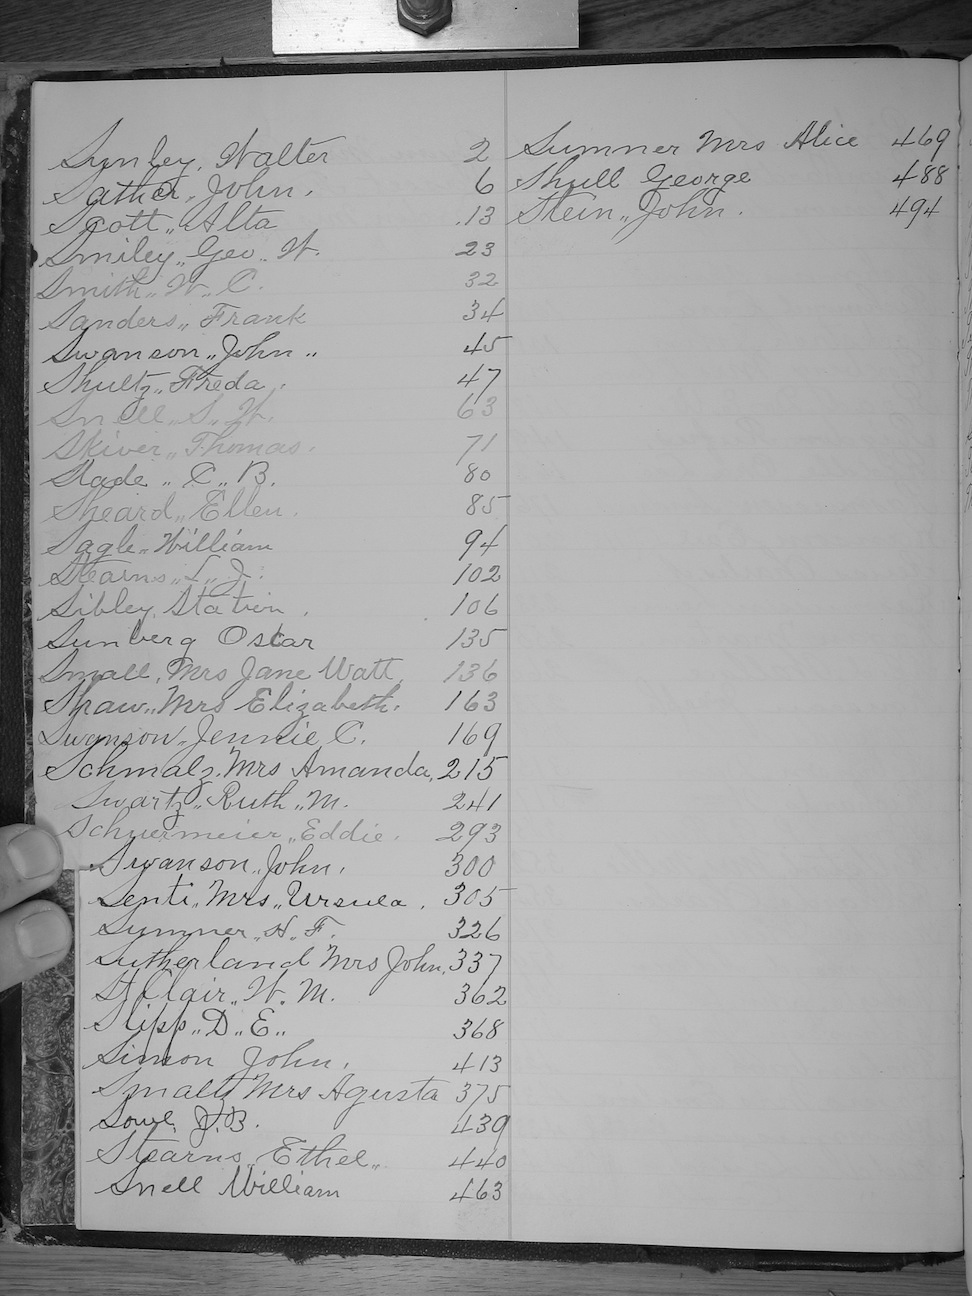 Sunley, Walter 2
Sather, John. 6
Scott,, Alta 13
Smiley,, Geo,, W. 23
Smith,, W,, C. 32
Sanders,, Frank 34
Swanson,, John,, 45
Shultz,, Freda. 47
Snell,, S,, W. 63
Skiver,, Thomas. 71
Slade,, C,, B. 80
Sheard,, Ellen. 85
Sagle,, William 94
Stearns,, L,, J. 102
Sibley, Station. 106
Sunberg Oscar 135
Small, Mrs Jane Watt, 136
Shaw,, Mrs Elizabeth. 163
Swanson,, Jennie C. 169
Schmalz, Mrs Amanda, 215
Swartz,, Ruth,, M. 241
Schuermeier,, Eddie. 293
Swanson,, John. 300
Senti,, Mrs,, Ursula. 305
Sumner,, H,, F. 326
Sutherland Mrs John, 337
St Clair,, W. M. 362
Slipp,, D,, E,, 368
Simon John. 413
Small Mrs Agusta 375
Sowl, J. B. 439
Stearns,, Ethel,, 440
Snell William 463
Sumner Mrs Alice 469
Shull George 488
Stein,, John. 494